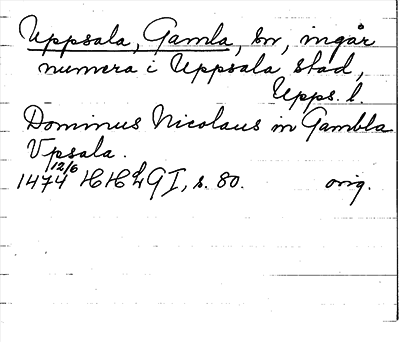 Uppsala, Gamla, sn, ingår
numera i Uppsala stad,
Upps. l.
Dominus Nicolaus in Gambla
Vpsala.
12/6
1474 HH G I, s. 80. orig.